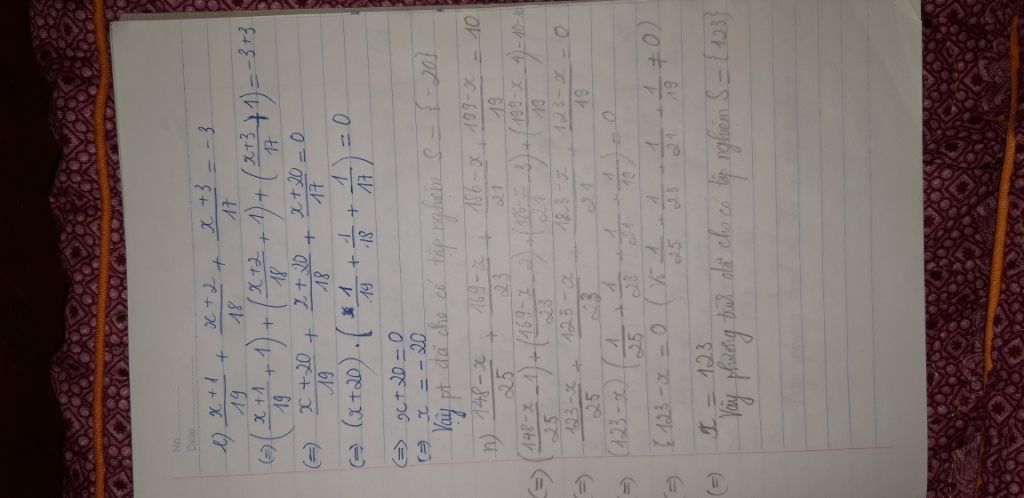 No.
Date
l) (x+1)/19 + (x+2)/18 + (x+3)/17 = -3
(=) ((x+1)/19 + 1) + ((x+2)/18 + 1) + ((x+3)/17 + 1) = -3+3
(=) (x+20)/19 + (x+20)/18 + (x+20)/17 = 0
(=) (x+20) . (1/19 + 1/18 + 1/17) = 0
(=) x+20=0
(=) x = -20
Vậy pt đã cho có tập nghiệm S = {-20}
n) (148-x)/25 + (169-x)/23 + (186-x)/21 + (199-x)/19 = 10
(=) ((148-x)/25 - 1) + ((169-x)/23 - 2) + ((186-x)/21 - 3) + ((199-x)/19 - 4) = 10-10
(=) (123-x)/25 + (123-x)/23 + (123-x)/21 + (123-x)/19 = 0
(=) (123-x) (1/25 + 1/23 + 1/21 + 1/19) = 0
(=) {123-x = 0 (Vì 1/25 + 1/23 + 1/21 + 1/19 ≠ 0)
(=) x = 123
Vậy phương trình đã cho có tập nghiệm S = {123}